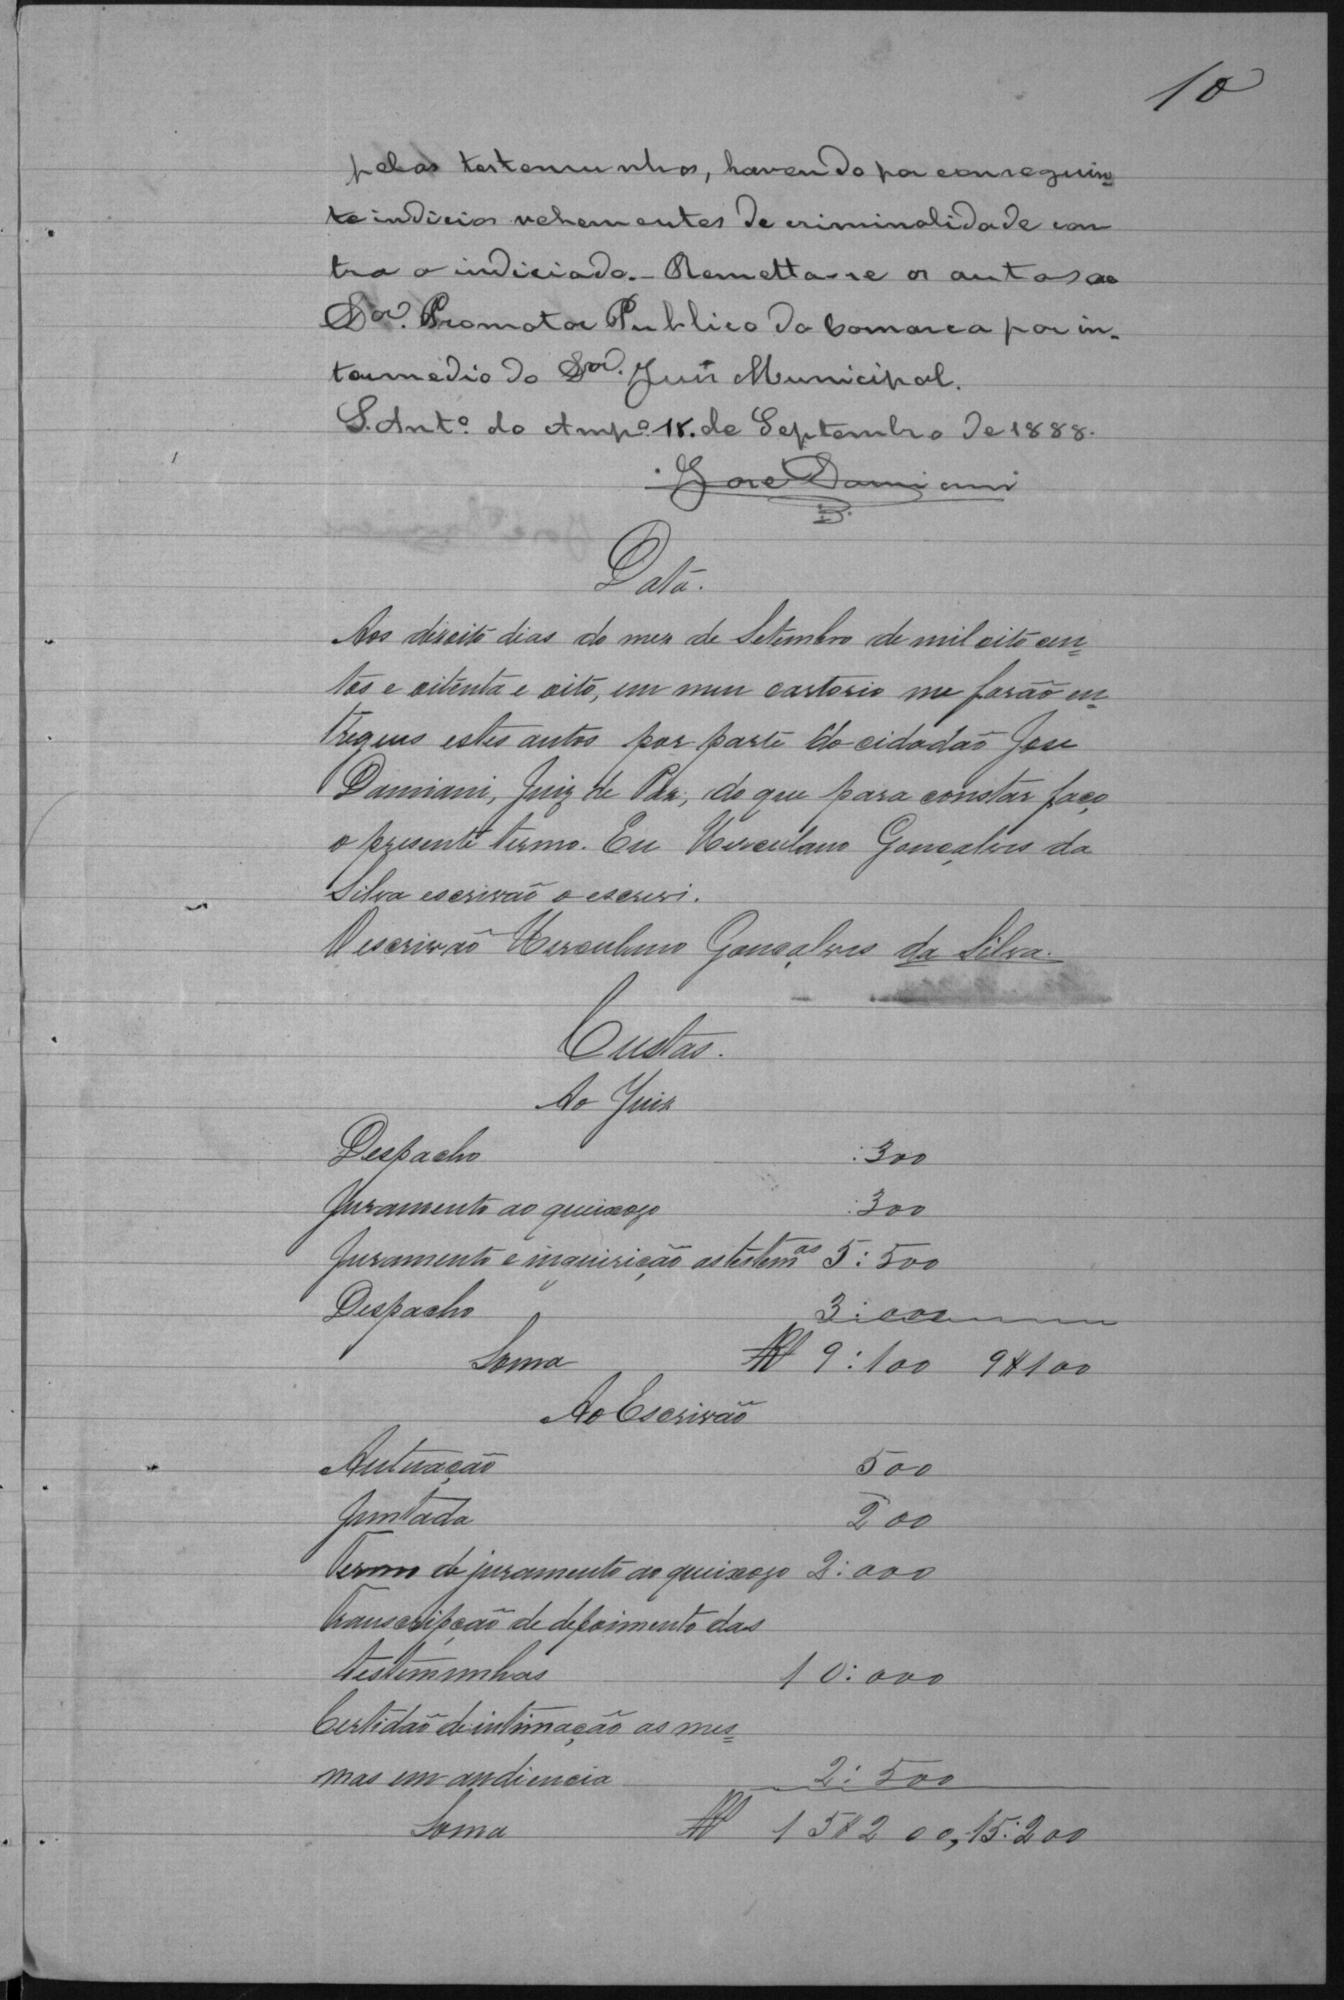 10
pelas testemunhas, havendo por conseguin=
te indicios vehementes de criminalidade con
tra o indiciado.- Remetta-se os autos ao
Dor. Promotor Publico da Comarca por in-
termedio do Dor. Juis Municipal.
S. Anto. do Ampo. 18. de Septembro de 1888.
José Damiani
Data.
Aos dezoito dias do mez de Setembro de mil oito cen=
tos e oitenta e oito, em meu cartorio me forão en=
tregues estes autos por parte do cidadão Jose
Damiani, Juiz de Paz, do que para constar faço
o presente termo. Eu Herculano Gonçalves da
Silva escrivão o escrevi.
O escrivão Herculano Gonçalves da Silva.
Custas.
Ao Juiz
Despacho :300
Juramento ao queixozo :300
Juramento e inquirição as testemas 5:500
Despacho 3:000
Soma R 9:100 9$100
Ao Escrivão
Autuação 500
Juntada 200
Termo de juramento ao queixozo 2:000
Transcripção de depoimento das
testemunhas 10:000
Certidão de intimação as mes=
mas em audiencia 2:500
Soma R 15$200, 15:200